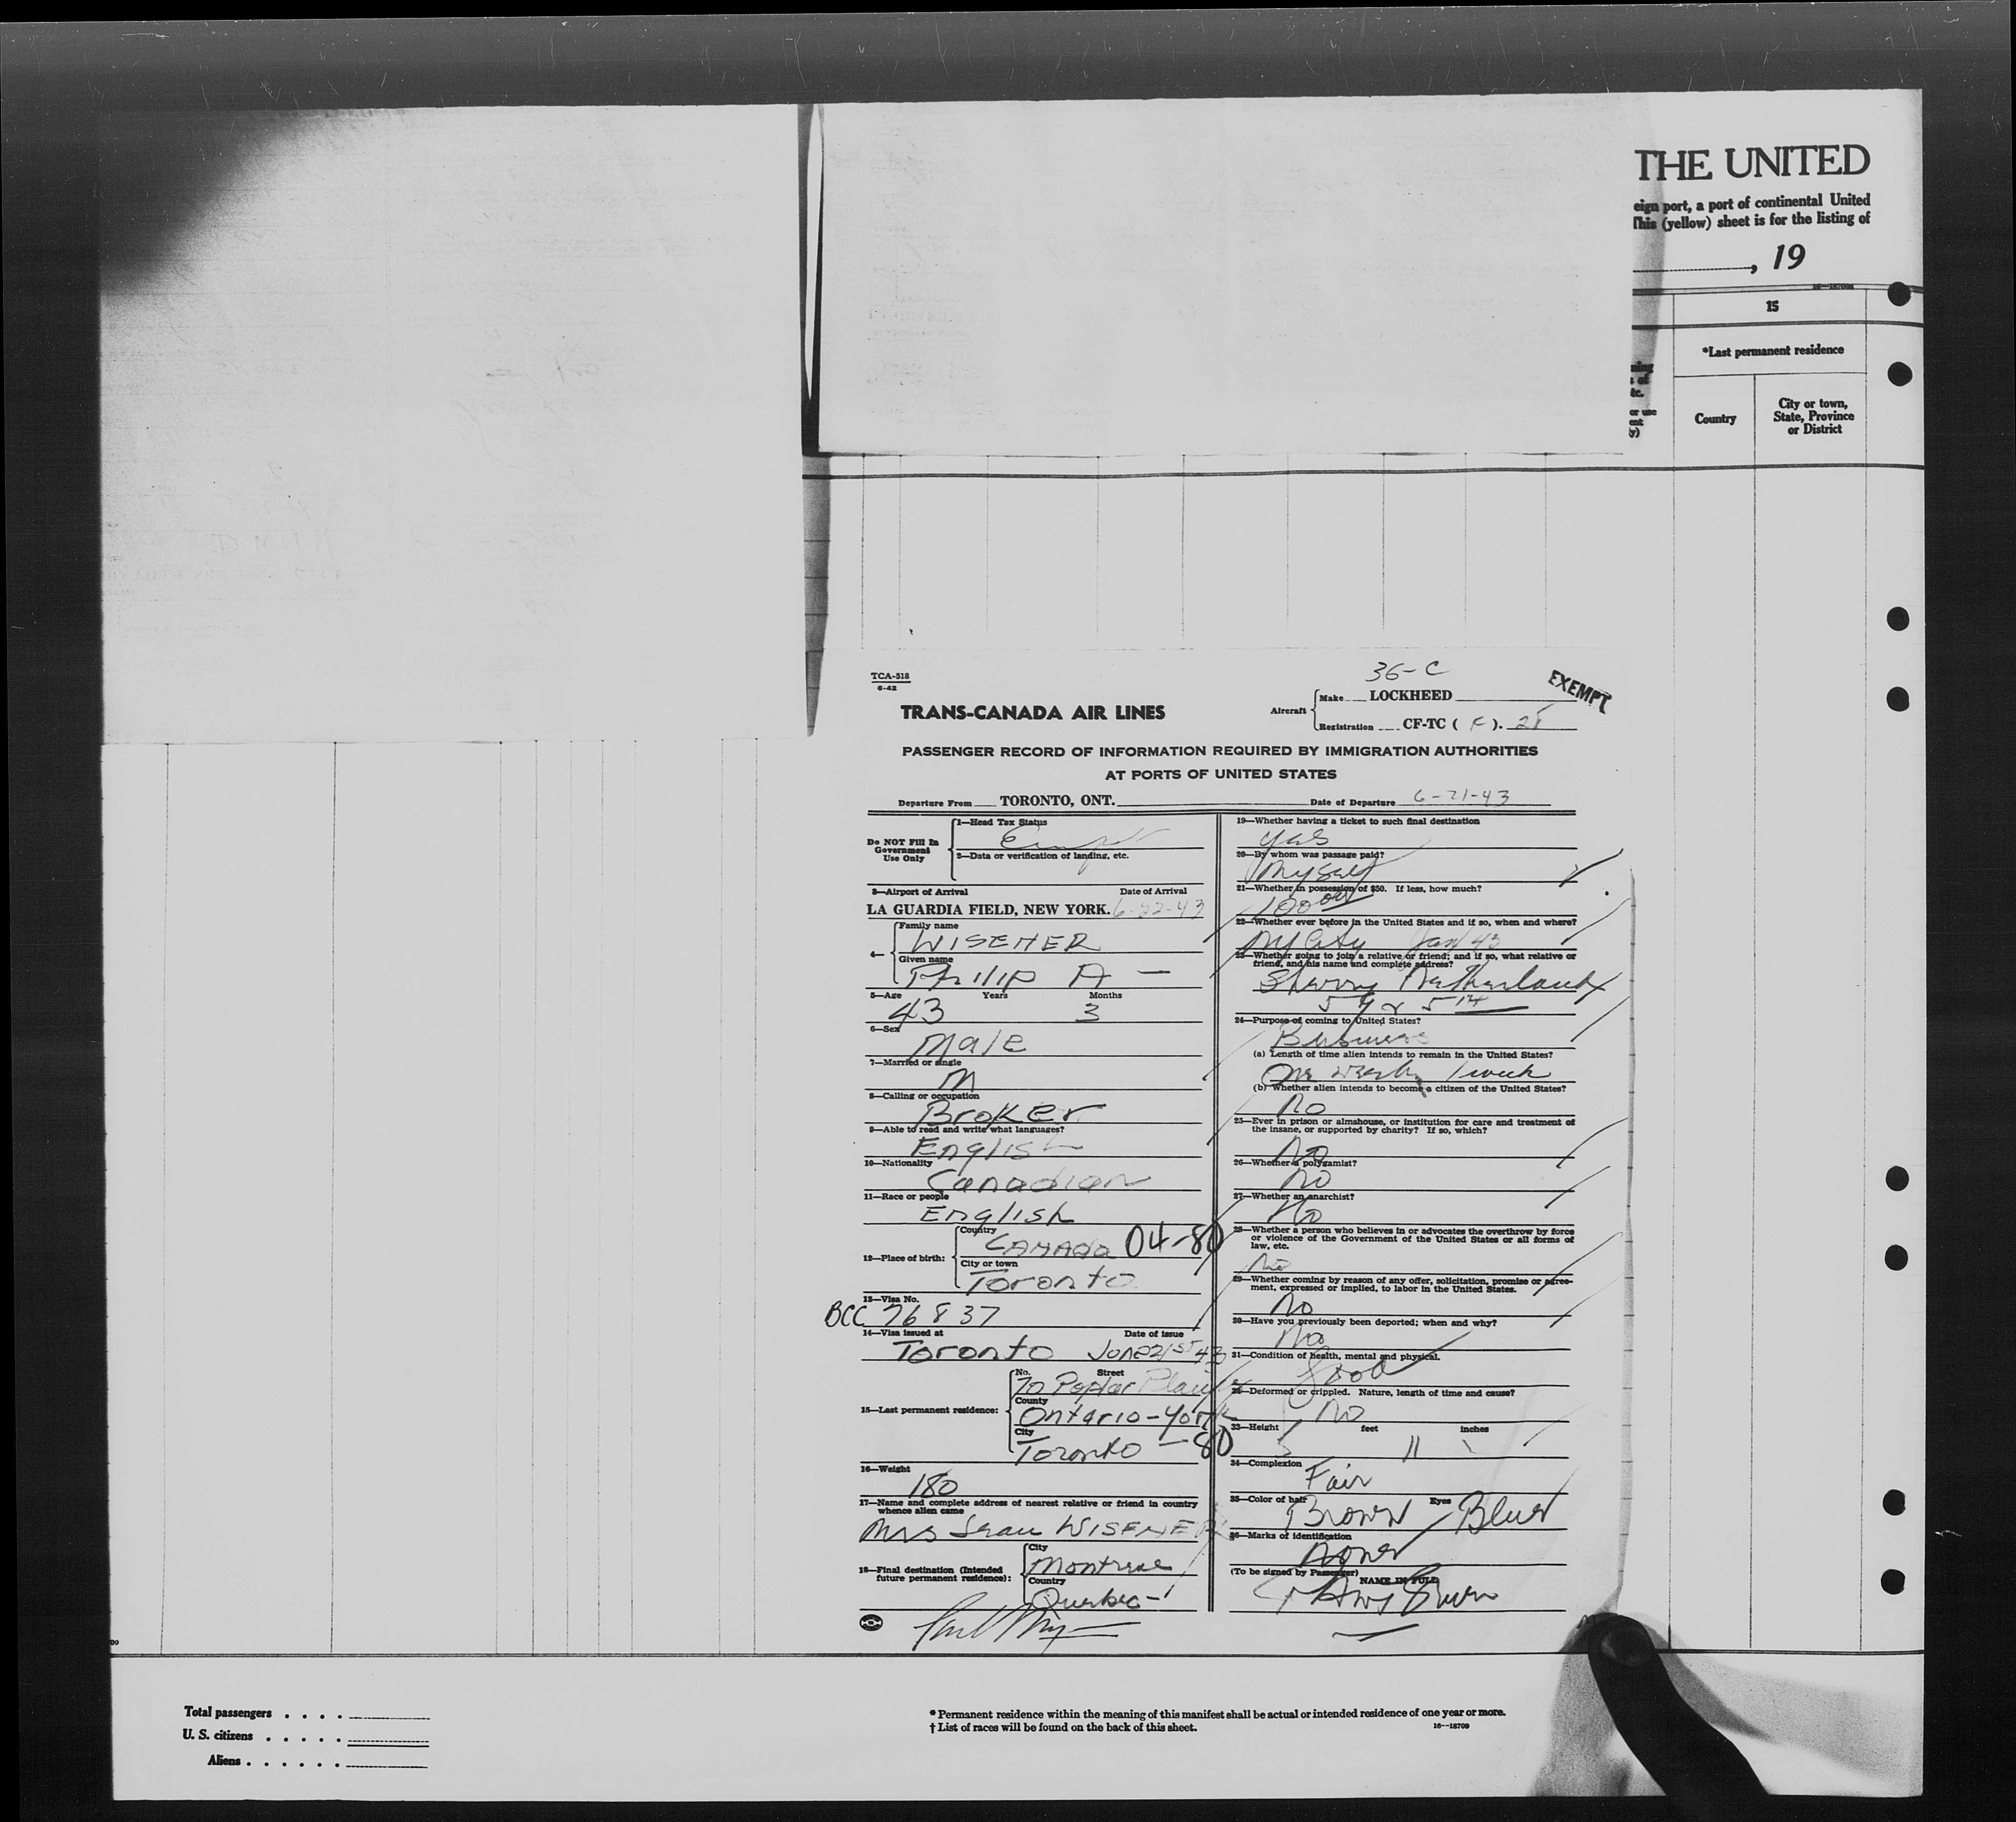 THE UNITED
eign port, a port of continental United
This (yellow) sheet is for the listing of
, 19
15
*Last permanent residence
or use
ent
y)
Country
City or town,
State, Province
or District
36-C
TCA-518
6-42
EXEMPT
TRANS-CANADA AIR LINES
Aircraft
Make LOCKHEED
Registration CF-TC ( F ).
PASSENGER RECORD OF INFORMATION REQUIRED BY IMMIGRATION AUTHORITIES
AT PORTS OF UNITED STATES
Departure From TORONTO, ONT.
Date of Departure 6-21-43
Do NOT Fill In
Government
Use Only
1—Head Tax Status
2—Data or verification of landing, etc.
3—Airport of Arrival Date of Arrival
LA GUARDIA FIELD, NEW YORK. 6-22-43
4—
Family name
WISENER
Given name
Philip A —
5—Age Years Months
43 3
6—Sex
Male
7—Married or single
M
8—Calling or occupation
Broker
9—Able to read and write what languages?
English
10—Nationality
Canadian
11—Race or people
English
12—Place of birth:
Country
CANADA 04-80
City or town
Toronto
13—Visa No.
BCC 76837
14—Visa issued at Date of issue
Toronto June 21st 43
15—Last permanent residence:
No. Street
70 Poplar Plains
County
Ontario-York
City
Toronto - 80
16—Weight
180
17—Name and complete address of nearest relative or friend in country
whence alien came
Mrs Jean WISENER
18—Final destination (Intended
future permanent residence):
City
Montreal
Country
Quebec-
19—Whether having a ticket to such final destination
yes
20—By whom was passage paid?
Myself
21—Whether in possession of $50. If less, how much?
100 00
22—Whether ever before in the United States and if so, when and where?
NY City Jan 43
23—Whether going to join a relative or friend; and if so, what relative or
friend, and his name and complete address?
Sherry Netherland
59 & 5th
24—Purpose of coming to United States?
Business
(a) Length of time alien intends to remain in the United States?
One week 1 week
(b) Whether alien intends to become a citizen of the United States?
No
25—Ever in prison or almshouse, or institution for care and treatment of
the insane, or supported by charity? If so, which?
No
26—Whether a polygamist?
No
27—Whether an anarchist?
No
28—Whether a person who believes in or advocates the overthrow by force
or violence of the Government of the United States or all forms of
law, etc.
No
29—Whether coming by reason of any offer, solicitation, promise or agree-
ment, expressed or implied, to labor in the United States.
No
30—Have you previously been deported; when and why?
No
31—Condition of health, mental and physical.
Good
32—Deformed or crippled. Nature, length of time and cause?
No
33—Height feet inches
5 11
34—Complexion
Fair
35—Color of hair Eyes
Brown Blue
36—Marks of identification
None
(To be signed by Passenger)
NAME IN FULL
Total passengers . . . .
U. S. citizens . . . . .
Aliens . . . . . .
* Permanent residence within the meaning of this manifest shall be actual or intended residence of one year or more.
† List of races will be found on the back of this sheet.
16—18709